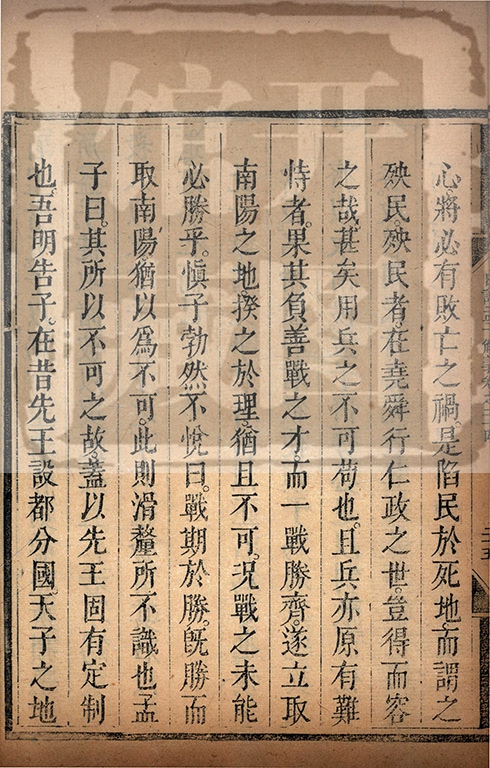 心。將必有敗亡之禍。是陷民於死地。而謂之
殃民。殃民者。在堯舜行仁政之世。豈得而容
之哉。甚矣用兵之不可苟也。且兵亦原有難
恃者。果其負善戰之才。而一戰勝齊。遂立取
南陽之地。揆之於理。猶且不可。况戰之未能
必勝乎。愼子勃然不悅曰。戰期於勝。旣勝而
取南陽。猶以爲不可。此則滑釐所不識也。孟
子曰。其所以不可之故。蓋以先王固有定制
也。吾明告子。在昔先王設都分國。天子之地